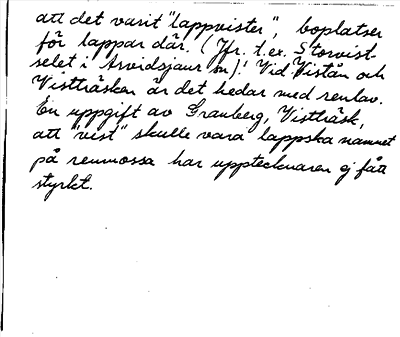 att det varit "lappvister", boplatser
för lappar där. (Jfr. t.ex. Storvist-
selet i Arvidsjaur sn)! Vid Vistån och
Vistträsken är det hedar med renlav.
En uppgift av Granberg, Vistträsk,
att "vist" skulle vara lappska namnet
på renmossa har upptecknaren ej fått
styrkt.